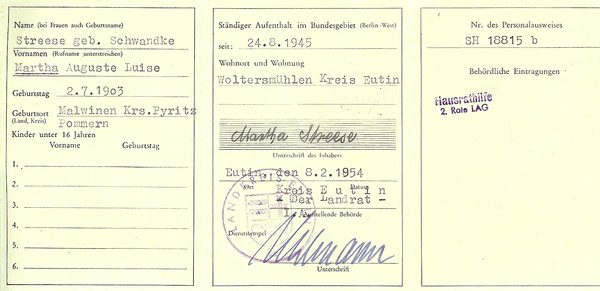 Name (bei Frauen auch Geburtsname)
Streese geb. Schwandke
Vornamen (Rufname unterstreichen)
Martha Auguste Luise
Geburtstag 2.7.1903
Geburtsort Malwinen Krs.Pyritz
(Land, Kreis) Pommern
Kinder unter 16 Jahren
Vorname Geburtstag
1.
2.
3.
4.
5.
6.
Ständiger Aufenthalt im Bundesgebiet (Berlin-West)
seit: 24.8.1945
Wohnort und Wohnung
Woltersmühlen Kreis Eutin
Martha Streese
Unterschrift des Inhabers
Eutin, den 8.2.1954
Ort Datum
Kreis Eutin
- Der Landrat -
Ausstellende Behörde
Dienststempel
Unterschrift
Nr. des Personalausweises
SH 18815 b
Behördliche Eintragungen
Hausrathilfe
2. Rate LAG